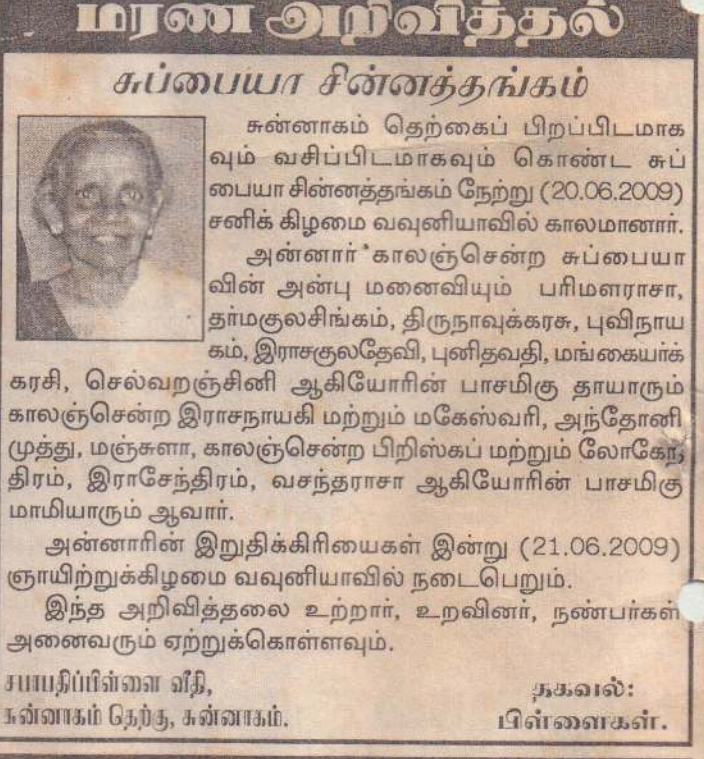 மரண அறிவித்தல்
சுப்பையா சின்னத்தங்கம்
சுன்னாகம் தெற்கைப் பிறப்பிடமாக
வும் வசிப்பிடமாகவும் கொண்ட சுப்
பையா சின்னத்தங்கம் நேற்று (20.06.2009)
சனிக் கிழமை வவுனியாவில் காலமானார்.
அன்னார் காலஞ்சென்ற சுப்பையா
வின் அன்பு மனைவியும் பரிமளராசா,
தர்மகுலசிங்கம், திருநாவுக்கரசு, புவிநாய
கம், இராசகுலதேவி, புனிதவதி, மங்கையர்க்
கரசி, செல்வறஞ்சினி ஆகியோரின் பாசமிகு தாயாரும்
காலஞ்சென்ற இராசநாயகி மற்றும் மகேஸ்வரி, அந்தோனி
முத்து, மஞ்சுளா, காலஞ்சென்ற பிறிஸ்கப் மற்றும் லோகேந்
திரம், இராசேந்திரம், வசந்தராசா ஆகியோரின் பாசமிகு
மாமியாரும் ஆவார்.
அன்னாரின் இறுதிக்கிரியைகள் இன்று (21.06.2009)
ஞாயிற்றுக்கிழமை வவுனியாவில் நடைபெறும்.
இந்த அறிவித்தலை உற்றார், உறவினர், நண்பர்கள்
அனைவரும் ஏற்றுக்கொள்ளவும்.
சபாபதிப்பிள்ளை வீதி,
சுன்னாகம் தெற்கு, சுன்னாகம்.
தகவல்:
பிள்ளைகள்.